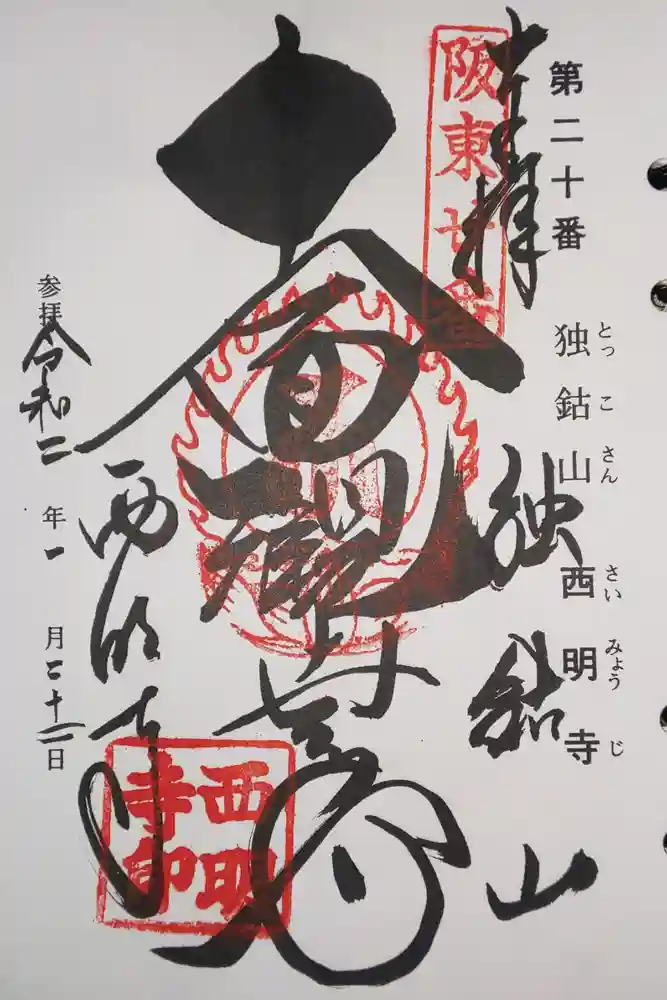 第二十番
独鈷山 西明寺
とっこさん さいみょうじ
奉拝
独鈷山
阪東廿番
十一面観世音
西明寺
西明寺印
参拝令和二年一月二十三日